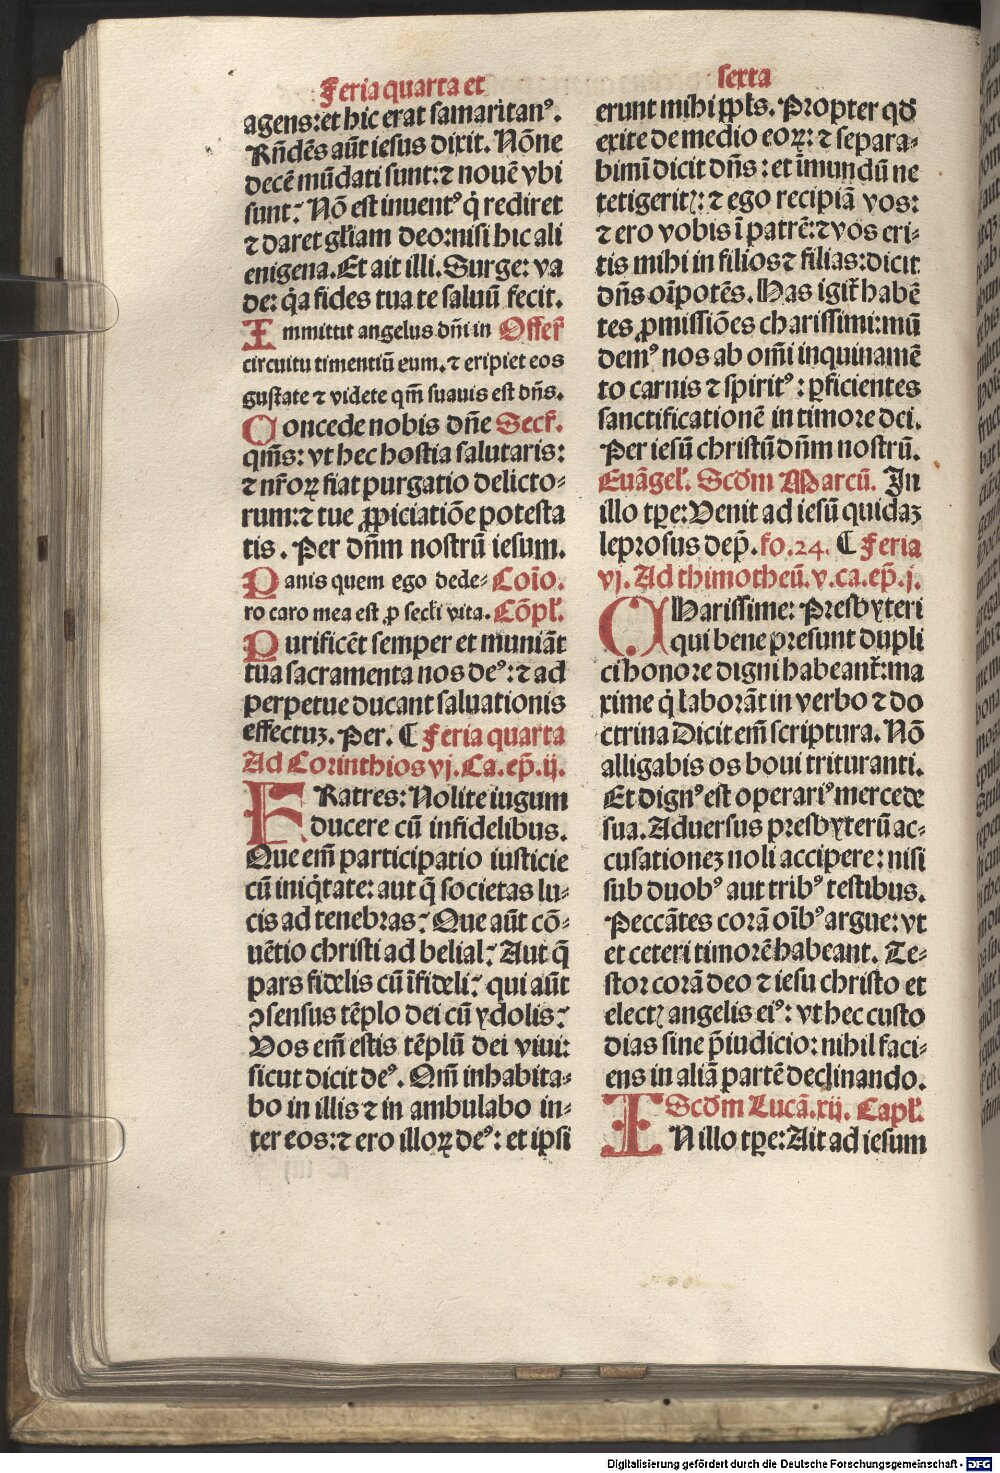 Feria quarta et
agens: et hic erat samaritanꝰ.
Rñdēs aūt iesus dixit. Nōne
decē mūdati sunt: ⁊ nouē vbi
sunt? Nō est inuentꝰ q̇ rediret
⁊ daret gl̄iam deo: nisi hic ali
enigena. Et ait illi. Surge: va
de: q̇a fides tua te saluū fecit.
Immittit angelus dñi in Offer̄
circuitu timentiū eum. ⁊ eripiet eos
gustate ⁊ videte qm̄ suauis est dñs.
Concede nobis dñe Secr̄.
qm̄s: vt hec hostia salutaris:
⁊ nr̄oꝝ fiat purgatio delicto-
rum: ⁊ tue ꝓpiciatiōe potesta
tis. Per dñm nostrū iesum.
Panis quem ego dede- Coīo.
ro caro mea est ꝓ secl̄i vita. Cōpl̄.
Purificēt semper et muniāt
tua sacramenta nos deꝰ: ⁊ ad
perpetue ducant saluationis
effectuꝫ. Per. ¶ Feria quarta
Ad Corinthios vj. Ca. ep̄. ij.
FRatres: Nolite iugum
ducere cū infidelibus.
Que em̄ participatio iusticie
cū iniq̇tate: aut q̄ societas lu-
cis ad tenebras? Que aūt cō-
uētio christi ad belial? Aut q̄
pars fidelis cū īfideli? qui aūt
ꝯsensus tēplo dei cū ydolis?
Vos em̄ estis tēplū dei viui:
sicut dicit deꝰ. Qm̄ inhabita-
bo in illis ⁊ in ambulabo in-
ter eos: ⁊ ero illoꝝ deꝰ: et ipsi
sexta
erunt mihi ppl̄s. Propter qd̄
exite de medio eoꝝ: ⁊ separa-
bimī dicit dñs: et īmundū ne
tetigeritꝭ: ⁊ ego recipiā vos:
⁊ ero vobis ī patrē: ⁊ vos eri-
tis mihi in filios ⁊ filias: dicit
dñs oīpotēs. Has igit̄ habē
tes ꝓmissiōes charissimi: mū
demꝰ nos ab om̄i inquinamē
to carnis ⁊ spiritꝰ: ꝑficientes
sanctificationē in timore dei.
Per iesū christū dñm nostrū.
Euāgel̄. Scd̄m Marcū. In
illo tꝑe: Venit ad iesū quidaꝫ
leprosus dep̄. fo. 24. ¶ Feria
vj. Ad thimotheū. v. ca. ep̄. j.
CHarissime: Presbyteri
qui bene presunt dupli
ci honore digni habeant̄: ma
xime q̇ laborāt in verbo ⁊ do
ctrina Dicit em̄ scriptura. Nō
alligabis os boui trituranti.
Et dignꝰ est operariꝰ mercede
sua. Aduersus presbyterū ac-
cusationeꝫ noli accipere: nisi
sub duobꝰ aut tribꝰ testibus.
Peccātes corā oībꝰ argue: vt
et ceteri timorē habeant. Te-
stor corā deo ⁊ iesu christo et
electꝭ angelis eiꝰ: vt hec custo
dias sine p̄iudicio: nihil faci-
ens in aliā partē declinando.
Scd̄m Lucā. xij. Capl̄.
IN illo tꝑe: Ait ad iesum
Digitalisierung gefördert durch die Deutsche Forschungsgemeinschaft - DFG